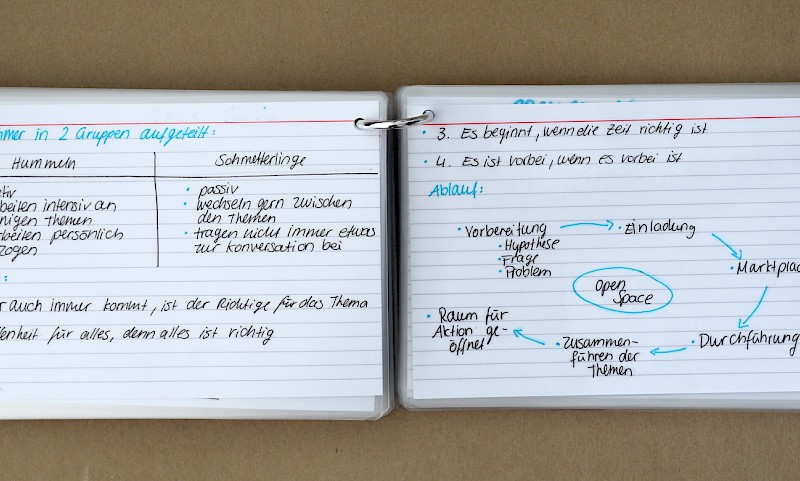 mer in 2 Gruppen aufgeteilt:
Hummeln
Schmetterlinge
tiv
beiten intensiv an
nigen Themen
beiten persönlich
zogen
• passiv
• wechseln gern zwischen
den Themen
• tragen nicht immer etwas
zur Konversation bei
:
r auch immer kommt, ist der Richtige für das Thema
fenheit für alles, denn alles ist richtig
• 3. Es beginnt, wenn die Zeit richtig ist
• 4. Es ist vorbei, wenn es vorbei ist
Ablauf:
• Vorbereitung
• Hypothese
• Frage
• Problem
• Einladung
• Marktplac
• Durchführung
• Zusammen-
führen der
Themen
• Raum für
Aktion ge-
öffnet
Open
Space